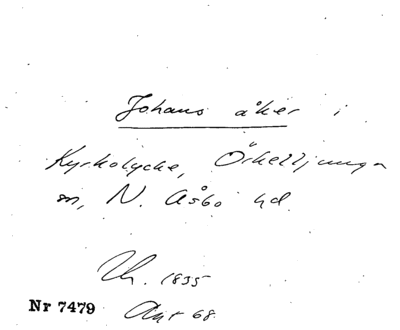 Johans åker i
Kyrkolycke, Örkelljunga
sn, N. Åsbo hd.
Lh. 1835
Nr 7479
Akt 68.